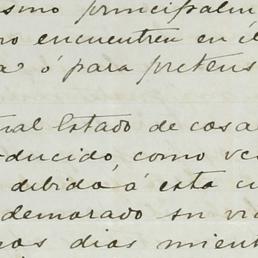 ismo principalm
ro encuentren en él
a ó para pretens
nal Estado de cosa
oducido, como ve
debida á esta cu
demorado su via
nos dias mient